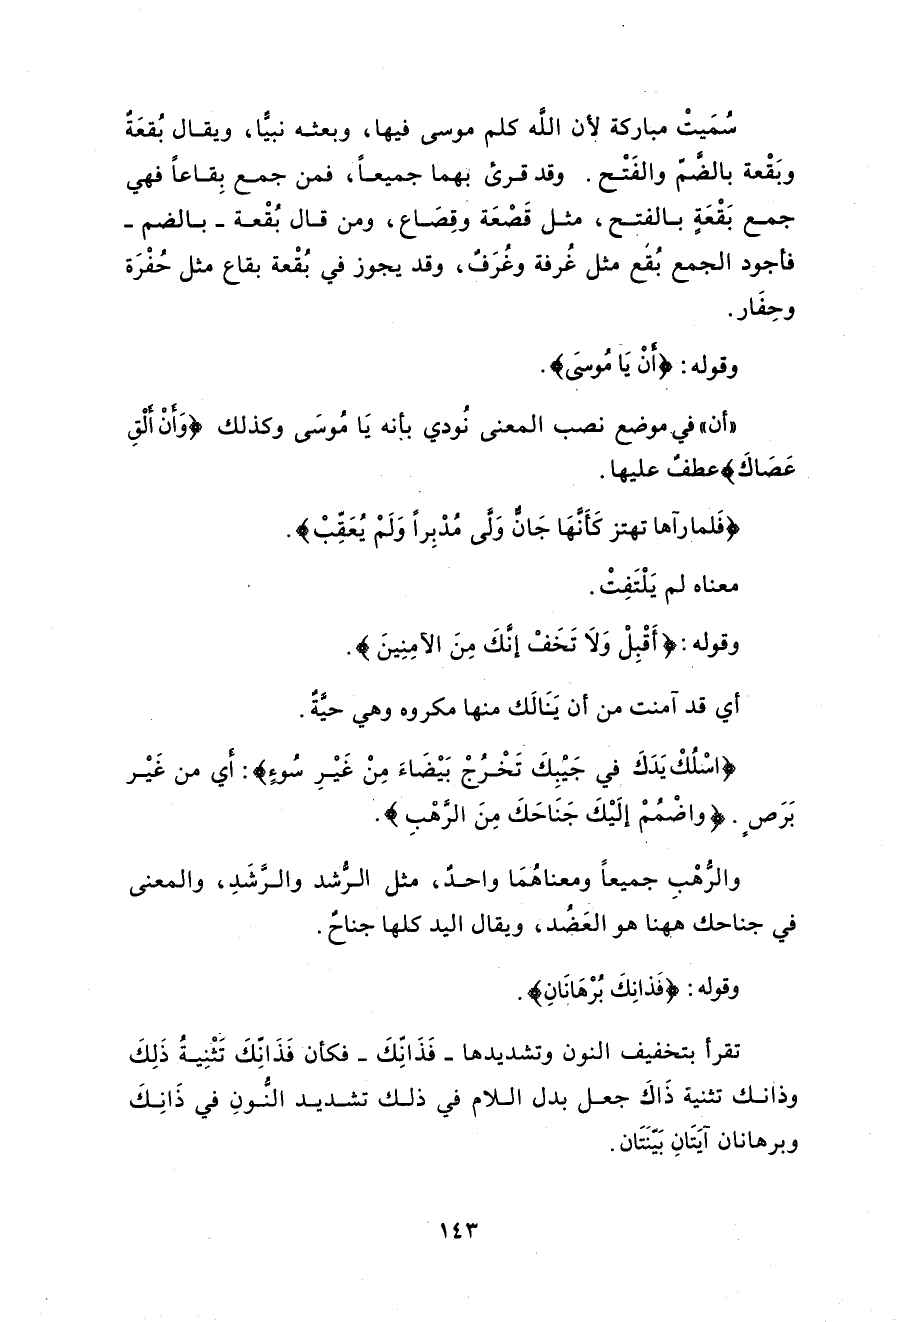 سُمّيتْ مباركة لأن اللَّه كلم موسى فيها، وبعثه نبيًّا، ويقال بُقعَةٌ
وبَقْعة بالضَّمّ والفَتْح. وقد قرئ بهما جميعاً، فمن جمع بِقاعاً فهي
جمع بَقْعَةٍ بالفتح، مثل قَصْعَة وقِصَاع، ومن قال بُقْعة ـ بالضم ـ
فأجود الجمع بُقَع مثل غُرفة وغُرَفٌ، وقد يجوز في بُقْعة بقاع مثل حُفْرَة
وحِفَار.
وقوله: ﴿أَنْ يَا مُوسَى﴾.
«أن» في موضع نصب المعنى نُودي بأنه يَا مُوسَى وكذلك ﴿وَأَنْ أَلْقِ
عَصَاكَ﴾ عطفٌ عليها.
﴿فَلما رآها تهتز كَأَنَّهَا جَانٌّ وَلَّى مُدْبِراً وَلَمْ يُعَقِّبْ﴾.
معناه لم يَلْتَفِتْ.
وقوله: ﴿أَقْبِلْ وَلَا تَخَفْ إنَّكَ مِنَ الآمِنِينَ﴾.
أي قد آمنت من أن يَنَالَك منها مكروه وهي حيَّةٌ.
﴿اسْلُكْ يَدَكَ في جَيْبِكَ تَخْرُجْ بَيْضَاءَ مِنْ غَيْرِ سُوءٍ﴾: أي من غَيْر
بَرَصٍ. ﴿واضْمُمْ إلَيْكَ جَنَاحَكَ مِنَ الرَّهْبِ﴾.
والرُّهْبِ جميعاً ومعناهُمَا واحدٌ، مثل الرُّشد والرَّشَدِ، والمعنى
في جناحك ههنا هو العَضُد، ويقال اليد كلها جناحٌ.
وقوله: ﴿فَذانِكَ بُرْهَانَانِ﴾.
تقرأ بتخفيف النون وتشديدها ـ فَذَانِّكَ ـ فكأن فَذَانِّكَ تَثْنِيةُ ذَلِكَ
وذانك تثنية ذاكَ جعل بدل اللام في ذلك تشديد النُّونِ في ذَانِكَ
وبرهانان آيَتَانِ بَيّنَتَان.
١٤٣